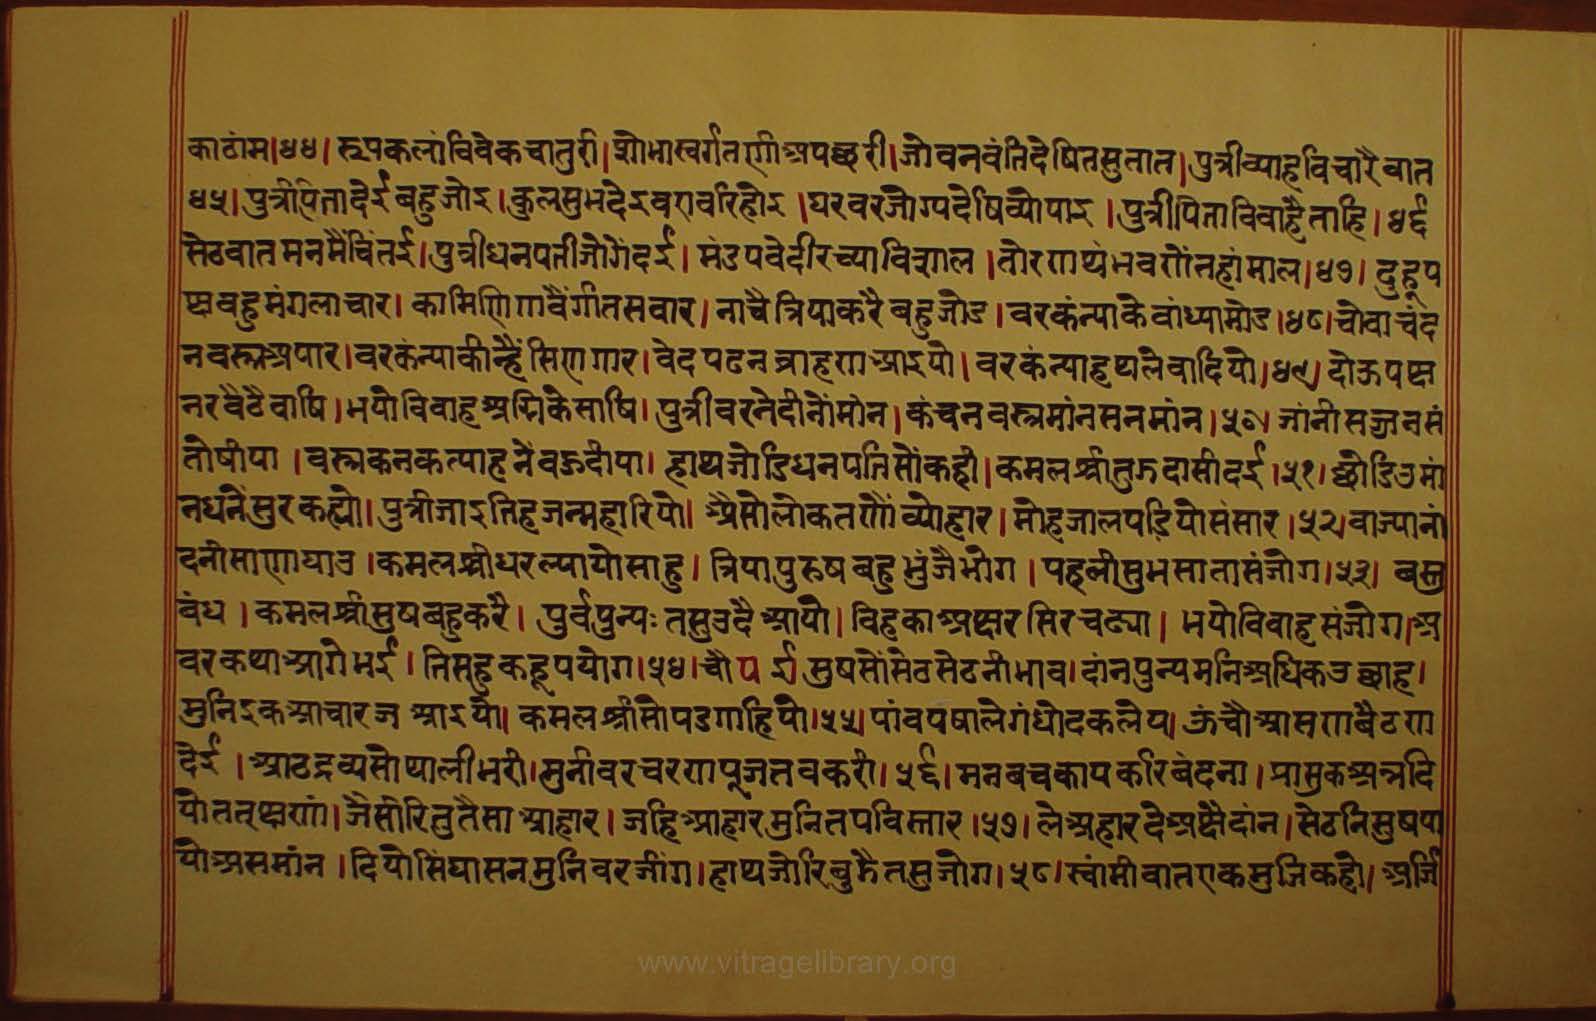 काठांम।४४। रूपकलांविवेकचातुरी। शोभास्वर्गतणीअपछरी। जोवनवंतिदेषितसुतात। पुत्रीव्याहविचारैवात
४५। पुत्रीपितादेईबहुजोइ। कुलसुभदेइवरावरिहोइ। घरवरजोग्यदेषिव्योपाइ। पुत्रीपिताविवाहैताहि। ४६
सेठवातमनमैंचिंतई। पुत्रीधनपतीजोगेंदई। मंडपवेदीरच्याविशाल। तोरणथंभवणेंतहांमाल। ४७। दुहूप
क्षबहुमंगलाचार। कामिणिगावैंगीतसवार। नाचैत्रियाकरैबहुजोड। वरकंन्याकेवांध्यामोड। ४८। चोवाचंद
नवस्त्रअपार। वरकंन्याकीन्हैंसिणगार। वेदपढनव्राहणआइयो। वरकंन्याहथलेवादियो। ४९। दोऊपक्ष
नरवैठैवाषि। भयोविवाहअग्निकेसाषि। पुत्रीवरनेदीनोंमांन। कंचनवस्त्रमांनसनमांन। ५०। जांनीसज्जनसं
तोषीया। वस्त्रकनकत्याहनेंवऊदीया। हाथजोडिधनपतिसोंकही। कमलश्रीतुऊदासीदई। ५१। छोडिउमां
नधनेंसुरकह्यो। पुत्रीजाइतिहजन्महारियो। अैसोलोकतणोंव्योहार। मोहजालपडियोसंसार। ५२। वाज्यानां
दनीसाणाघाउ। कमलश्रीघरल्यायोसाहु। त्रियापुरुषबहुभुंजैभोग। पहलीसुभसातासंजोग। ५३। बस्तु
बंध। कमलश्रीसुषबहुकरै। पुर्वपुन्यः तसुउदैआयो। विहकाअक्षरसिरचढ्या। भयोविवाहसंजोग। अ
वरकथाआगेभई। तिसहुकहूपयोग। ५४। चौपई सुषसोंसेठसेठनीभाव। दांनपुन्यमनिअधिकउछाह।
मुनिइकआचारजआइयो। कमलश्रीसोपडगाहियो। ५५। पांवपषालेगंधोदकलेय। ऊंचौआसणबैठण
देई। आठद्रव्यसोथालीभरी। मुनीवरचरणपूजतवकरी। ५६। मनबचकायकरिबंदना। प्रासुकअन्नदि
योततक्षणां। जैसीरितुतैसाआहार। जहिआहारमुनितपविस्तार। ५७। लेअहारदेअक्षैदांन। सेठनिसुषपा
योअसमांन। दियोसिंघासनमुनिवरजींग। हाथजोरिबुझैतसुजोग। ५८। स्वांमीवातएकमुजिकहो। अर्जि
www.vitragelibrary.org